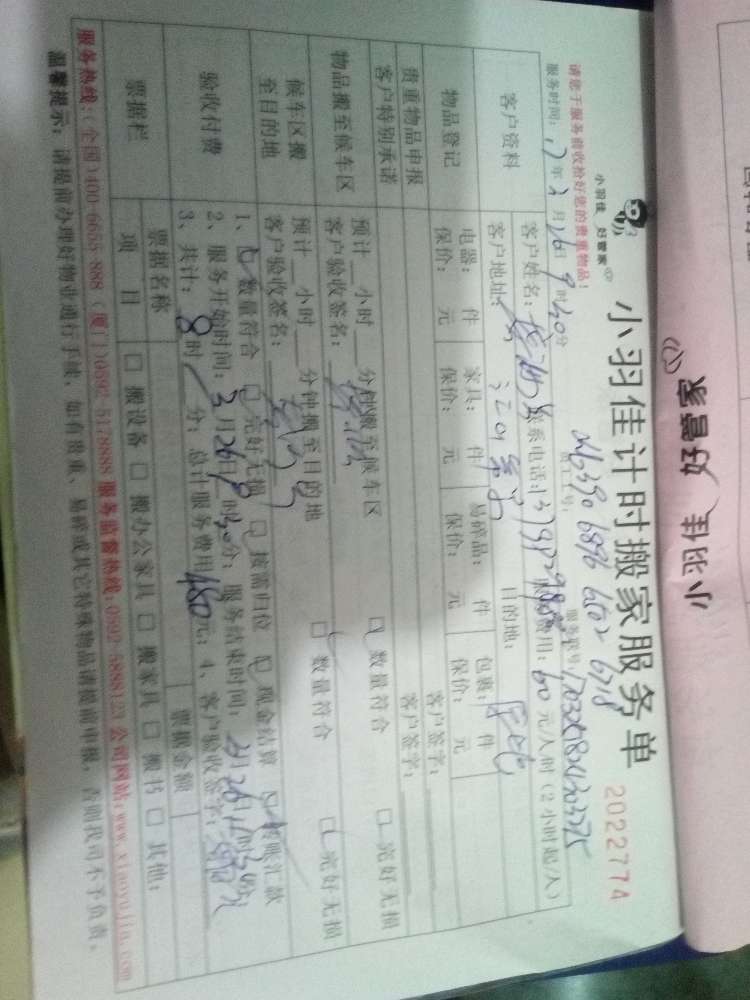 小羽佳 好管家
小羽佳 好管家
小羽佳计时搬家服务单
2022774
请您于服务前收拾好您的贵重物品!
服务时间: 17年3月26日9时30分
员工工号: 6390 6896 6502 6718
服务单号:
客户资料
客户姓名:
联系电话:
费用: 60元/人时(2小时起/人)
客户地址:
目的地:
物品登记
电器: 件 家具: 件 易碎品: 件 包裹: 件
保价: 元 保价: 元 保价: 元 保价: 元
贵重物品申报
客户签字:
客户特别承诺
客户签字:
物品搬至候车区
预计 小时 分钟搬至候车区
客户验收签名:
□ 数量符合 □ 完好无损
候车区搬至目的地
预计 小时 分钟搬至目的地
客户验收签名:
□ 数量符合 □ 完好无损
验收付费
1、□ 数量符合 □ 完好无损 □ 按需归位 □ 现金结算 □ 转账汇款
2、服务开始时间: 3月26日9时30分; 服务结束时间: 3月26日
3、共计: 8时 分; 总计服务费用480元; 4、客户验收签字:
票据栏
票据名称
票据金额
项目
□ 搬设备 □ 搬办公家具 □ 搬家具 □ 搬书 □ 其他:
服务热线:(全国)400-6655-888 (厦门)0592-5178888 服务监督热线:0592-5888123 公司网站:www.xiaoyujia.com
温馨提示: 请提前办理好物业通行手续, 如有贵重、易碎或其它特殊物品请提前申报, 否则我司不予负责。